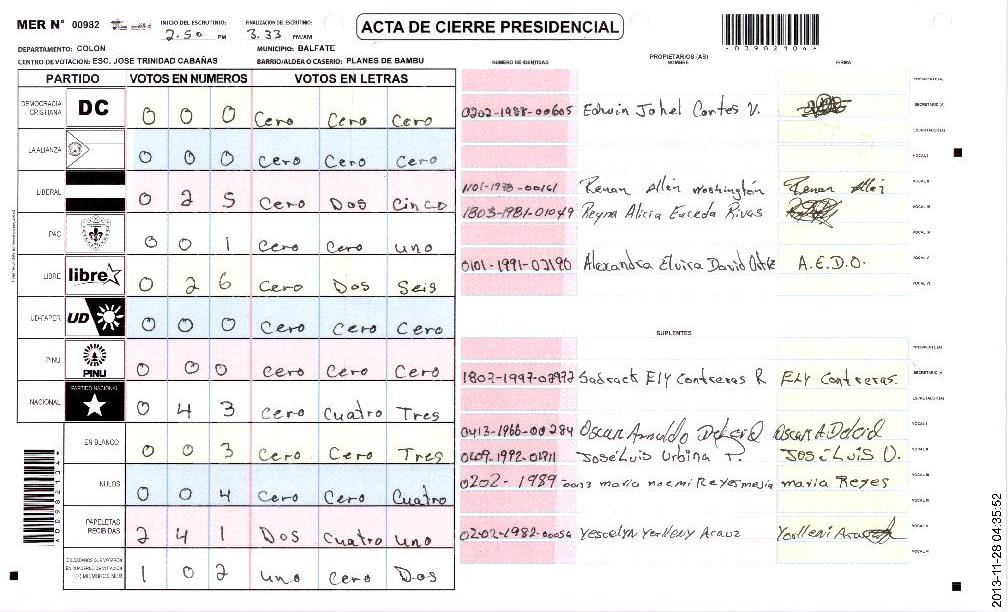 MER N° 00982 INICIO DEL ESCRUTINIO: 2.50 PM FINALIZACION DEL ESCRUTINIO: 3.33 PM/AM
ACTA DE CIERRE PRESIDENCIAL
*00982104*
DEPARTAMENTO: COLON MUNICIPIO: BALFATE
CENTRO DE VOTACION: ESC. JOSE TRINIDAD CABAÑAS BARRIO/ALDEA O CASERIO: PLANES DE BAMBU
PARTIDO VOTOS EN NUMEROS VOTOS EN LETRAS
DEMOCRACIA CRISTIANA DC 0 0 0 Cero Cero Cero
LA ALIANZA 0 0 0 Cero Cero Cero
LIBERAL 0 2 5 Cero Dos Cinco
PAC 0 0 1 Cero Cero uno
LIBRE libre 0 2 6 Cero Dos Seis
UD-FAPER UD 0 0 0 Cero Cero Cero
PINU PINU 0 0 0 Cero Cero Cero
NACIONAL PARTIDO NACIONAL 0 4 3 Cero Cuatro Tres
EN BLANCO 0 0 3 Cero Cero Tres
NULOS 0 0 4 Cero Cero Cuatro
PAPELETAS RECIBIDAS 2 4 1 Dos Cuatro uno
CIUDADANOS QUE VOTARON EN CUADERNO DE VOTACION (+) MIEMBROS MER 1 0 2 uno Cero Dos
PROPIETARIOS (AS)
NUMERO DE IDENTIDAD NOMBRE FIRMA
PRESIDENTE (A)
0202-1988-00605 Edwin Johel Cortes V. SECRETARIO (A)
ESCRUTADOR (A)
VOCAL I
1101-1978-00161 Renan Allen Washington Renan Allen VOCAL II
1803-1981-01049 Reyna Alicia Euceda Rivas VOCAL III
VOCAL IV
0101-1991-02190 Alexandra Elvira David Ortiz A.E.D.O. VOCAL V
VOCAL VI
SUPLENTES
PRESIDENTE (A)
1807-1997-02972 Sadrack Ely Contreras R Ely Contreras. SECRETARIO (A)
ESCRUTADOR (A)
0413-1966-00284 Oscar Arnaldo Oscar A VOCAL I
0209-1992-01911 José Luis Urbina P. José Luis U. VOCAL II
0202-1989 maria noemi Reyes mejia maria Reyes VOCAL III
VOCAL IV
0202-1982-00054 Yesselyn Yerlleny Arauz VOCAL V
VOCAL VI
2013-11-28 04:35:52